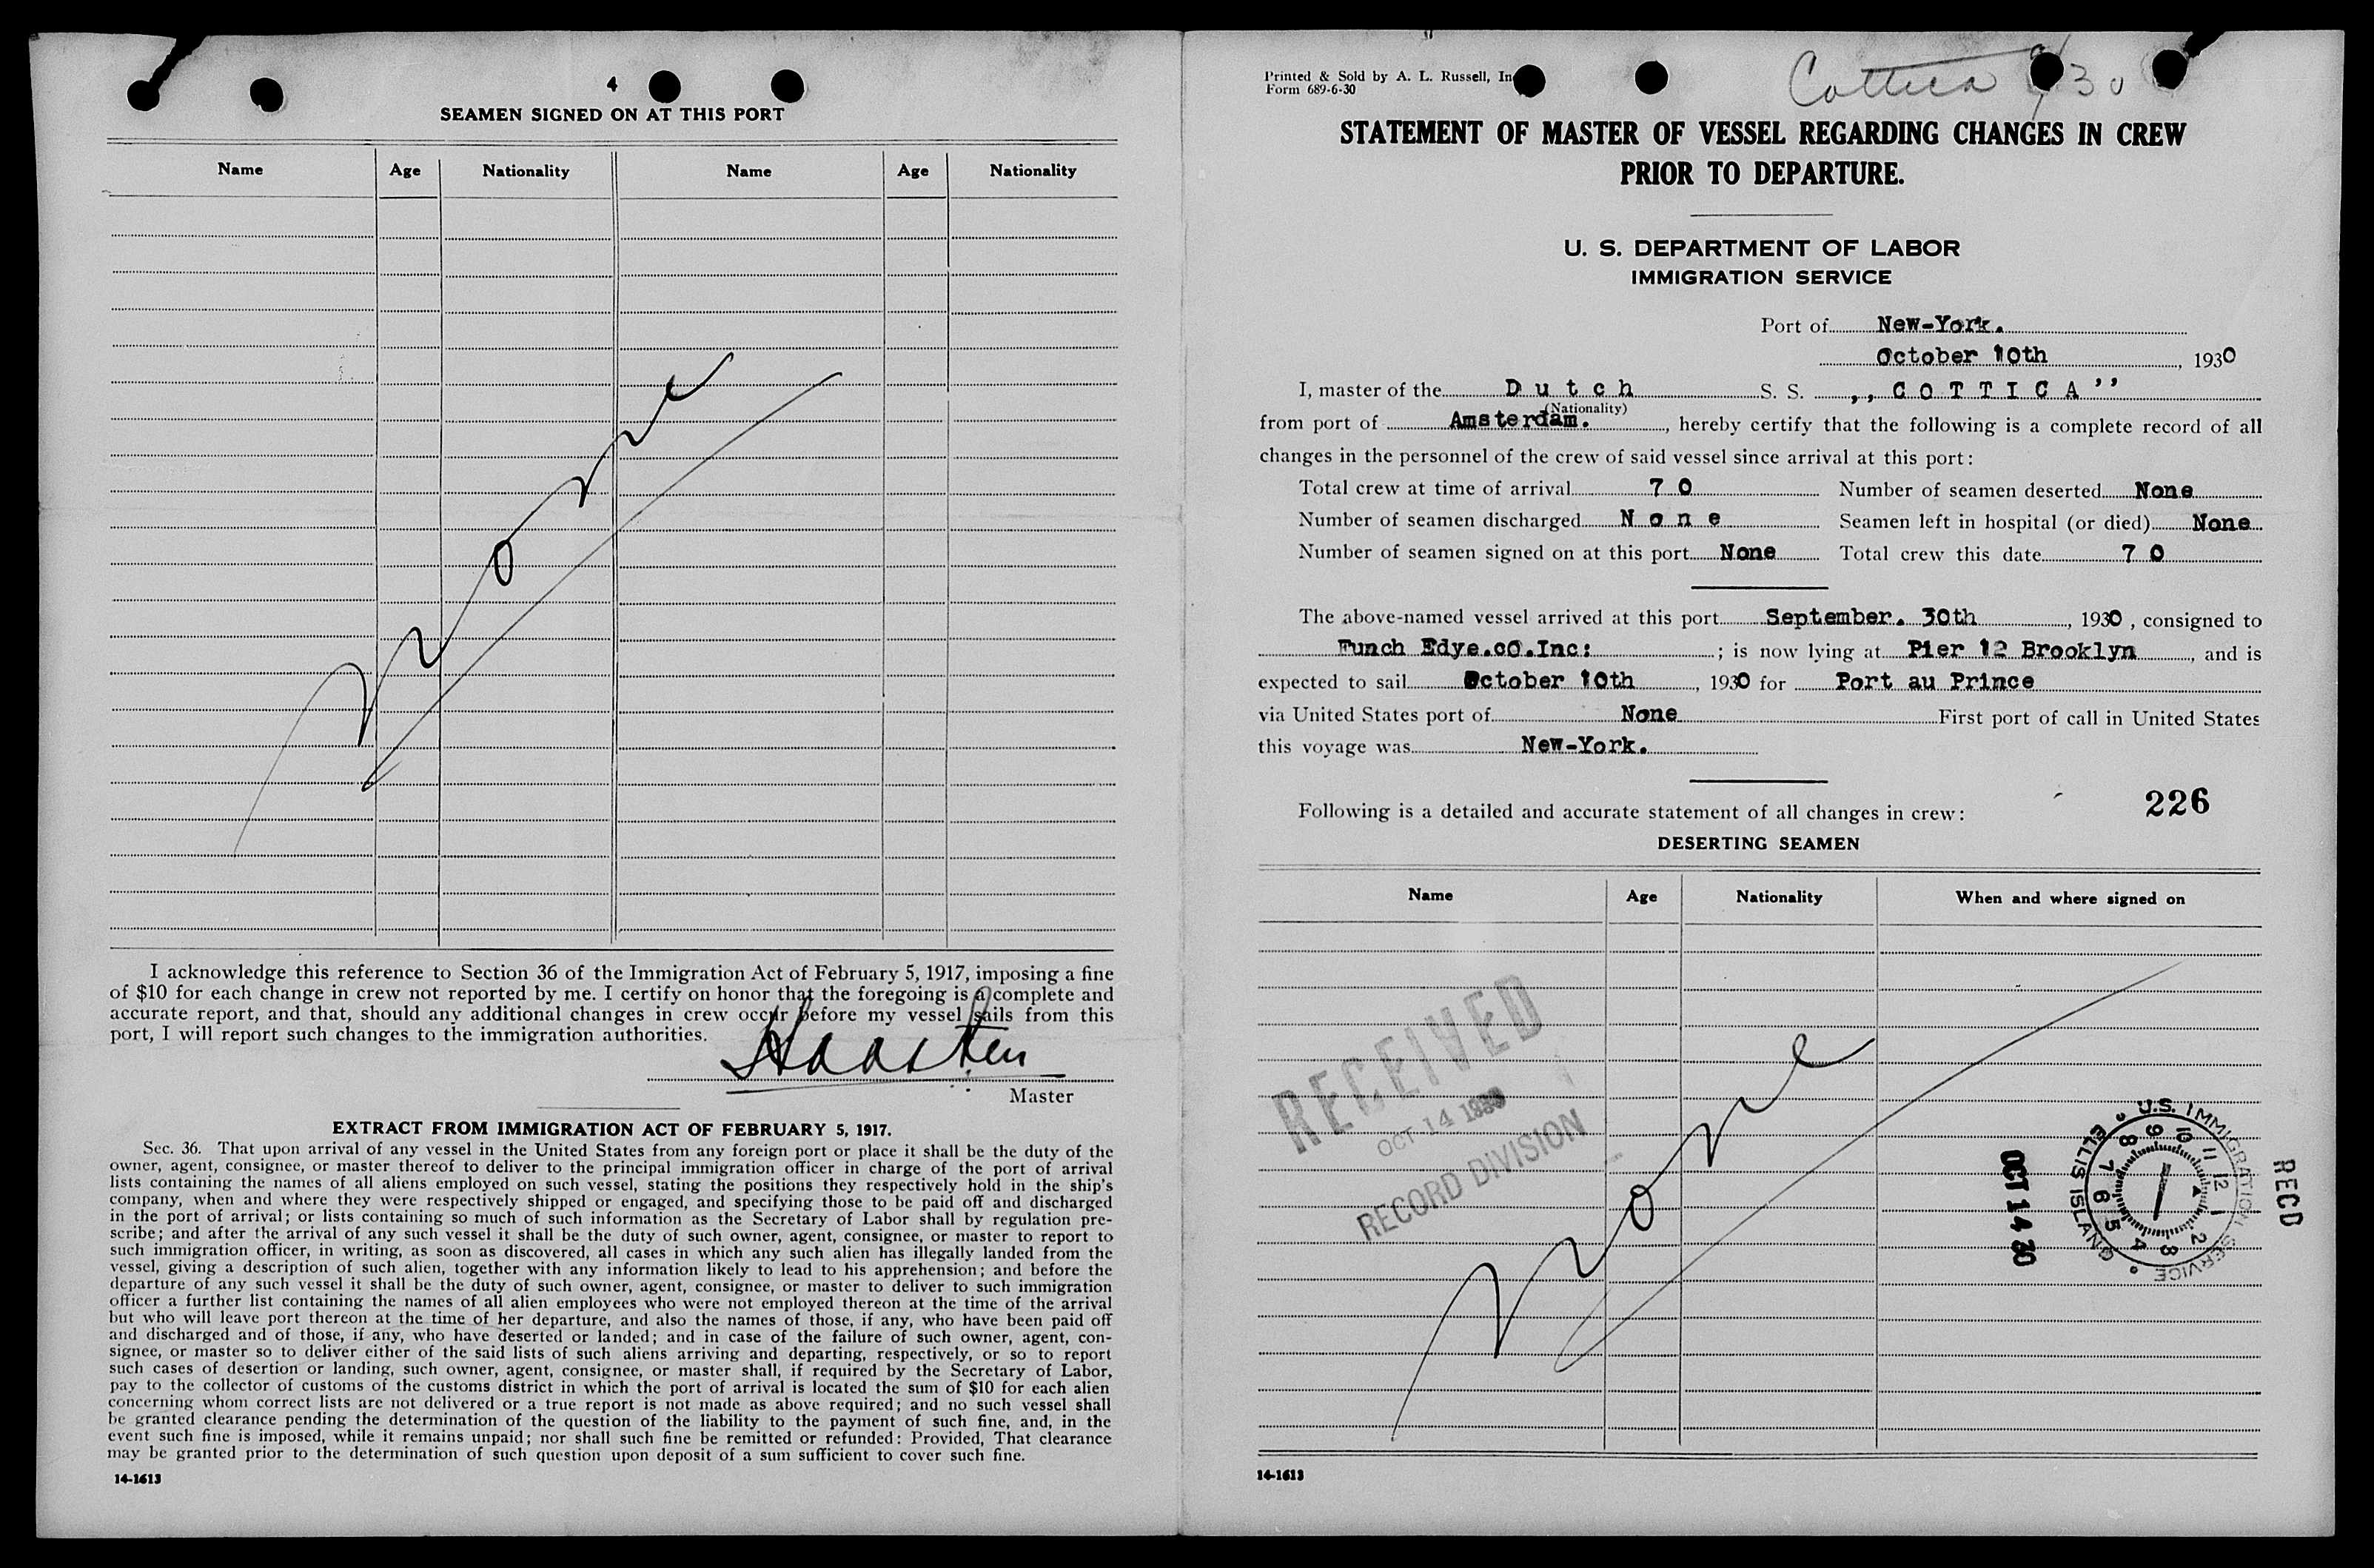 4
SEAMEN SIGNED ON AT THIS PORT
Name Age Nationality Name Age Nationality
None
I acknowledge this reference to Section 36 of the Immigration Act of February 5, 1917, imposing a fine
of $10 for each change in crew not reported by me. I certify on honor that the foregoing is a complete and
accurate report, and that, should any additional changes in crew occur before my vessel sails from this
port, I will report such changes to the immigration authorities.
Master
EXTRACT FROM IMMIGRATION ACT OF FEBRUARY 5, 1917.
Sec. 36. That upon arrival of any vessel in the United States from any foreign port or place it shall be the duty of the
owner, agent, consignee, or master thereof to deliver to the principal immigration officer in charge of the port of arrival
lists containing the names of all aliens employed on such vessel, stating the positions they respectively hold in the ship's
company, when and where they were respectively shipped or engaged, and specifying those to be paid off and discharged
in the port of arrival; or lists containing so much of such information as the Secretary of Labor shall by regulation pre-
scribe; and after the arrival of any such vessel it shall be the duty of such owner, agent, consignee, or master to report to
such immigration officer, in writing, as soon as discovered, all cases in which any such alien has illegally landed from the
vessel, giving a description of such alien, together with any information likely to lead to his apprehension; and before the
departure of any such vessel it shall be the duty of such owner, agent, consignee, or master to deliver to such immigration
officer a further list containing the names of all alien employees who were not employed thereon at the time of the arrival
but who will leave port thereon at the time of her departure, and also the names of those, if any, who have been paid off
and discharged and of those, if any, who have deserted or landed; and in case of the failure of such owner, agent, con-
signee, or master so to deliver either of the said lists of such aliens arriving and departing, respectively, or so to report
such cases of desertion or landing, such owner, agent, consignee, or master shall, if required by the Secretary of Labor,
pay to the collector of customs of the customs district in which the port of arrival is located the sum of $10 for each alien
concerning whom correct lists are not delivered or a true report is not made as above required; and no such vessel shall
be granted clearance pending the determination of the question of the liability to the payment of such fine, and, in the
event such fine is imposed, while it remains unpaid; nor shall such fine be remitted or refunded: Provided, That clearance
may be granted prior to the determination of such question upon deposit of a sum sufficient to cover such fine.
14-1613
Printed & Sold by A. L. Russell,
Form 689-6-30
Cottica
STATEMENT OF MASTER OF VESSEL REGARDING CHANGES IN CREW
PRIOR TO DEPARTURE.
U. S. DEPARTMENT OF LABOR
IMMIGRATION SERVICE
Port of New-York.
October 10th, 1930
I, master of the Dutch S. S. ,,COTTICA''
(Nationality)
from port of Amsterdam., hereby certify that the following is a complete record of all
changes in the personnel of the crew of said vessel since arrival at this port:
Total crew at time of arrival 70 Number of seamen deserted None
Number of seamen discharged None Seamen left in hospital (or died) None
Number of seamen signed on at this port None Total crew this date 70
The above-named vessel arrived at this port September. 30th, 1930, consigned to
Funch Edye.cO.Inc: ; is now lying at Pier 12 Brooklyn, and is
expected to sail October 10th, 1930 for Port au Prince
via United States port of None First port of call in United States
this voyage was New-York.
226
Following is a detailed and accurate statement of all changes in crew:
DESERTING SEAMEN
Name Age Nationality When and where signed on
None
RECEIVED
OCT 14 1930
RECORD DIVISION
OCT 14 30
U.S. IMMIGRATION SERVICE ELLIS ISLAND
1 2 3 4 5 6 7 8 9 10 11 12
RECD
14-1613